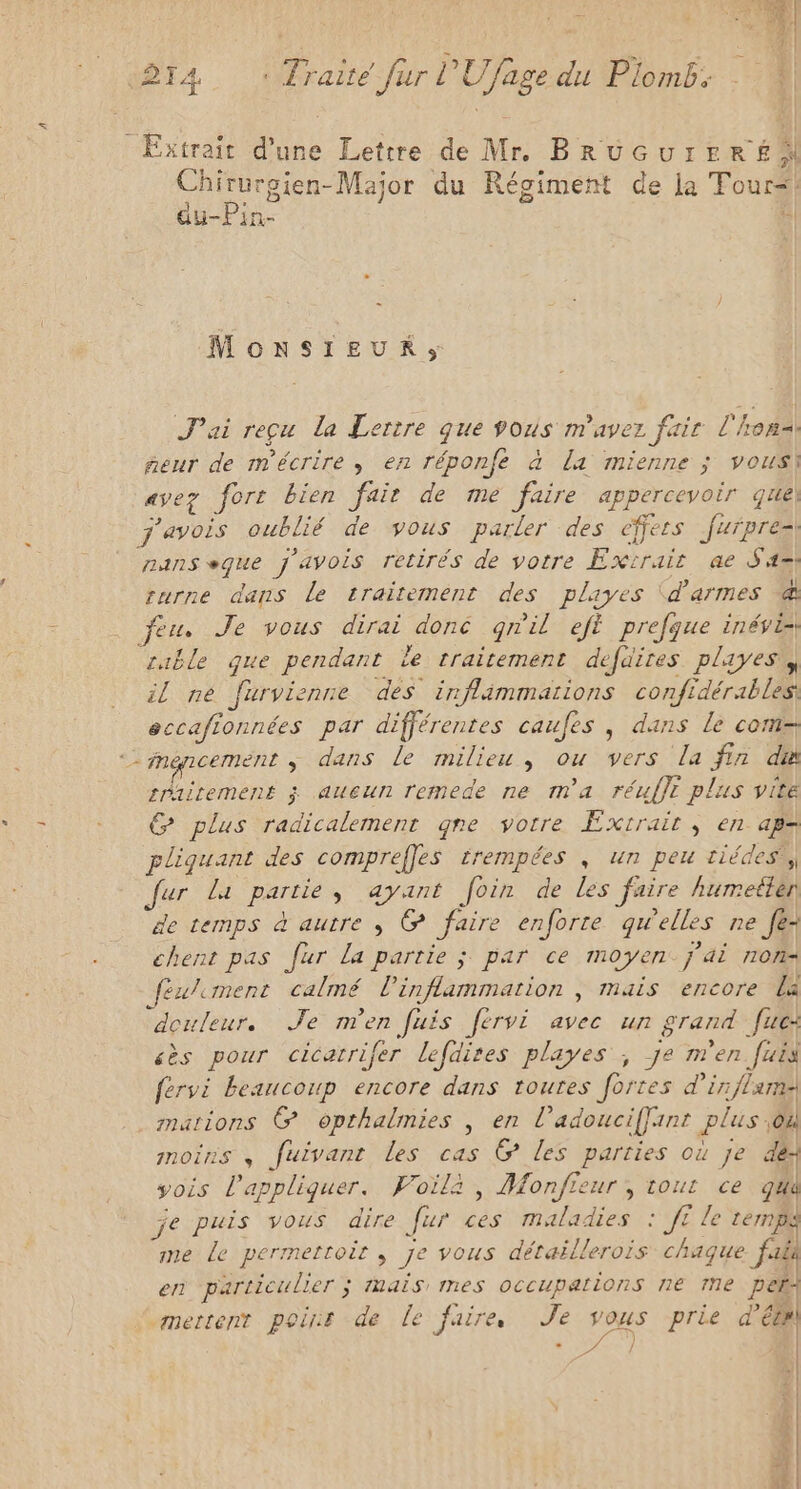 214 Traité ſur l'Uſage du Plomb.
Extrait d'une Lettre de Mr. BRUGUIERES,
Chirurgien-Major du Régiment de la Tour-
du-Pin.
MONSIEUR,
J'ai reçu la Lettre que vous m'avez fait l'hon-
neur de m'écrire, en réponſe à la mienne ; vous
avez fort bien fait de me faire appercevoir que
j'avois oublié de vous parler des effets ſurpre-
nans que j'avois retirés de votre Extrait de Sa-
turne dans le traitement des playes d'armes à
feu. Je vous dirai donc qu'il eſt preſque inévi-
table que pendant le traitement deſdites playes,
il ne ſurvienne des inflammations conſidérables
occaſionnées par différentes cauſes, dans le com-
mencement, dans le milieu, ou vers la fin du
traitement ; aucun remede ne m'a réuſſi plus vite
& plus radicalement que votre Extrait, en ap-
pliquant des compreſſes trempées, un peu tiédes,
ſur la partie, ayant ſoin de les faire humecter
de temps à autre, & faire enſorte qu'elles ne ſe-
chent pas ſur la partie ; par ce moyen j'ai non-
ſeulement calmé l'inflammation, mais encore la
douleur. Je m'en ſuis ſervi avec un grand ſuc-
cès pour cicatriſer leſdites playes ; je m'en ſuis
ſervi beaucoup encore dans toutes ſortes d'inflam-
mations & opthalmies, en l'adouciſſant plus ou
moins, ſuivant les cas & les parties où je de-
vois l'appliquer. Voilà, Monſieur, tout ce que
je puis vous dire ſur ces maladies : ſi le temps
me le permettoit, je vous détaillerois chaque fait
en particulier ; mais mes occupations ne me per-
mettent point de le faire. Je vous prie d'être